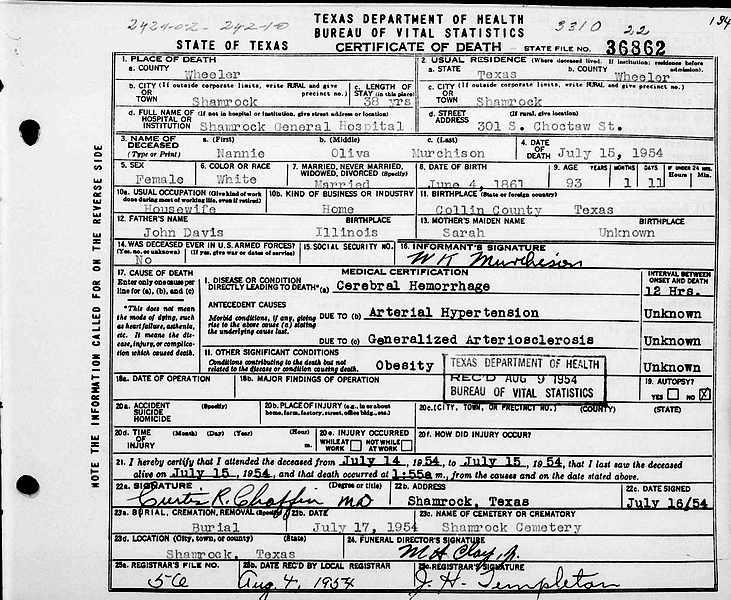 2421-02-242-10
TEXAS DEPARTMENT OF HEALTH
BUREAU OF VITAL STATISTICS
3310 22
134
STATE OF TEXAS
CERTIFICATE OF DEATH
STATE FILE NO. 36862
1. PLACE OF DEATH
a. COUNTY
Wheeler
2. USUAL RESIDENCE (Where deceased lived. If institution: residence before admission).
a. STATE
Texas
b. COUNTY
Wheeler
b. CITY (If outside corporate limits, write RURAL and give precinct no.)
OR
TOWN
Shamrock
c. LENGTH OF
STAY (in this place)
38 yrs
c. CITY (If outside corporate limits, write RURAL and give precinct no.)
OR
TOWN
Shamrock
d. FULL NAME OF (If not in hospital or institution, give street address or location)
HOSPITAL OR
INSTITUTION
Shamrock General Hospital
d. STREET (If rural, give location)
ADDRESS
301 S. Choctaw St.
3. NAME OF
DECEASED
(Type or Print)
a. (First)
Nannie
b. (Middle)
Oliva
c. (Last)
Murchison
4. DATE
OF
DEATH July 15, 1954
5. SEX
Female
6. COLOR OR RACE
White
7. MARRIED, NEVER MARRIED,
WIDOWED, DIVORCED (Specify)
Married
8. DATE OF BIRTH
June 4, 1861
9. AGE YEARS MONTHS DAYS IF UNDER 24 HRS.
Hours Min.
93 1 11
10a. USUAL OCCUPATION (Give kind of work
done during most of working life, even if retired)
Housewife
10b. KIND OF BUSINESS OR INDUSTRY
Home
11. BIRTHPLACE (State or foreign country)
Collin County Texas
12. FATHER'S NAME BIRTHPLACE
John Davis Illinois
13. MOTHER'S MAIDEN NAME BIRTHPLACE
Sarah Unknown
14. WAS DECEASED EVER IN U.S. ARMED FORCES?
(Yes, no, or unknown) (If yes, give war or dates of service)
No
15. SOCIAL SECURITY NO.
16. INFORMANT'S SIGNATURE
W K Murchison
17. CAUSE OF DEATH
Enter only one cause per
line for (a), (b), and (c)
*This does not mean
the mode of dying, such
as heart failure, asthenia,
etc. It means the dis-
ease, injury, or compli-
cation which caused death.
MEDICAL CERTIFICATION
INTERVAL BETWEEN
ONSET AND DEATH
I. DISEASE OR CONDITION
DIRECTLY LEADING TO DEATH* (a) Cerebral Hemorrhage
12 Hrs.
ANTECEDENT CAUSES
Morbid conditions, if any, giving
rise to the above cause (a) stating
the underlying cause last.
DUE TO (b) Arterial Hypertension
Unknown
DUE TO (c) Generalized Arteriosclerosis
Unknown
II. OTHER SIGNIFICANT CONDITIONS
Conditions contributing to the death but not
related to the disease or condition causing death.
Obesity
Unknown
TEXAS DEPARTMENT OF HEALTH
REC'D AUG 9 1954
BUREAU OF VITAL STATISTICS
18a. DATE OF OPERATION
18b. MAJOR FINDINGS OF OPERATION
19. AUTOPSY?
YES NO X
20a. ACCIDENT (Specify)
SUICIDE
HOMICIDE
20b. PLACE OF INJURY (e.g., in or about
home, farm, factory, street, office bldg., etc.)
20c. (CITY, TOWN, OR PRECINCT NO.) (COUNTY) (STATE)
20d. TIME (Month) (Day) (Year) (Hour)
OF
INJURY m.
20e. INJURY OCCURRED
WHILE AT
WORK
NOT WHILE
AT WORK
20f. HOW DID INJURY OCCUR?
21. I hereby certify that I attended the deceased from July 14, 1954, to July 15, 1954, that I last saw the deceased
alive on July 15, 1954, and that death occurred at 1:55a m., from the causes and on the date stated above.
22a. SIGNATURE (Degree or title)
Curtis R. Chaffin MD
22b. ADDRESS
Shamrock, Texas
22c. DATE SIGNED
July 16/54
23a. BURIAL, CREMATION, REMOVAL (Specify)
Burial
23b. DATE
July 17, 1954
23c. NAME OF CEMETERY OR CREMATORY
Shamrock Cemetery
23d. LOCATION (City, town, or county) (State)
Shamrock, Texas
24. FUNERAL DIRECTOR'S SIGNATURE
M H Clay, Jr.
25a. REGISTRAR'S FILE NO.
56
25b. DATE REC'D BY LOCAL REGISTRAR
Aug. 4, 1954
25c. REGISTRAR'S SIGNATURE
J. H. Templeton
NOTE THE INFORMATION CALLED FOR ON THE REVERSE SIDE